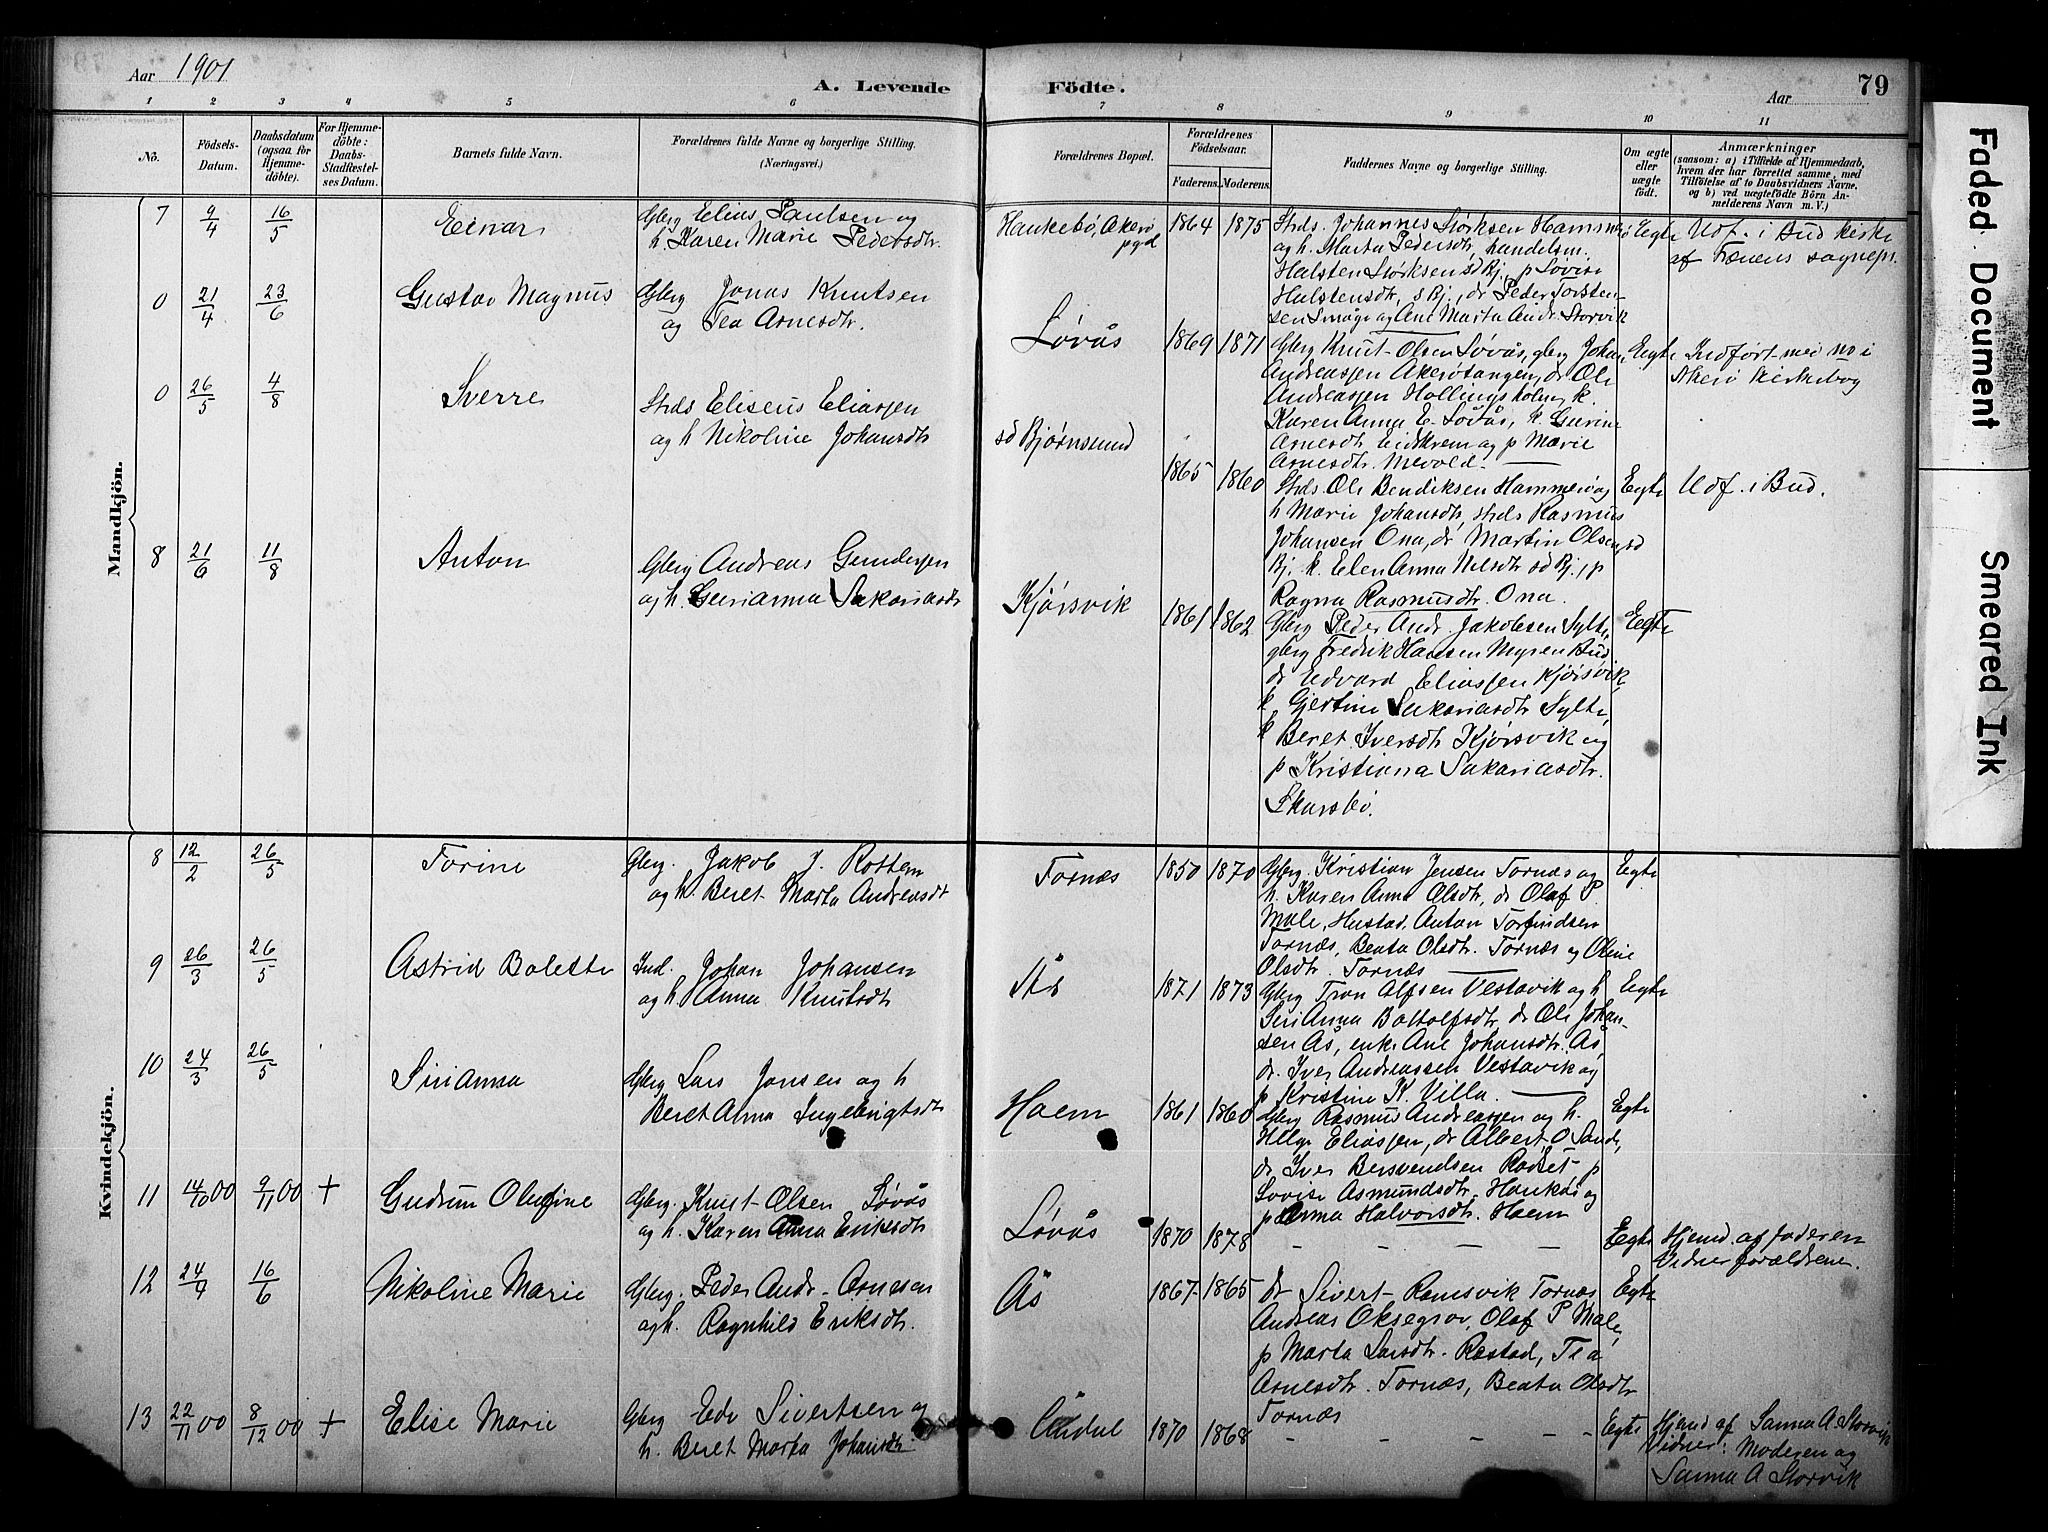 Aar 1901
A. Levende Födte.
Aar
79
1 2 3 4 5 6 7 8 9 10 11
No.
Födsels-
Datum.
Daabsdatum
(ogsaa for
Hjemme-
döbte).
For Hjemme-
döbte:
Daabs-
Stadfæstel-
ses Datum.
Barnets fulde Navn.
Forældrenes fulde Navne og borgerlige Stilling.
(Næringsvei.)
Forældrenes Bopæl.
Forældrenes
Födselsaar.
Faderens. Moderens.
Faddernes Navne og borgerlige Stilling.
Om ægte
eller
uægte
födt.
Anmærkninger
(saasom: a) i Tilfælde af Hjemmedaab,
hvem der har forrettet samme, med
Tilföielse af to Daabsvidners Navne,
og b) ved uægtefödte Börn An-
melderens Navn m. V.)
Mandkjön.
7 9/4 16/5 Einar
Gbrg Elias Paulsen og
h. Karen Marie Pedersdtr.
Haukebø, Akerø
pgd
1864 1875
Strds. Johannes Størksen Hammerø
og h. Marta Pedersdtr, handelsm.
Halsten Størksen sd Bj., p Lovise
Halstensdtr, s Bj., dr Peder Torsten-
sen Småge og Ane Marta Andr. Storvik
Egte
Udf. i Bud kirke
af Frænens sognepr.
0 21/4 23/6 Gustav Magnus
Gbrg Jonas Knutsen
og Tea Arnesdtr.
Løvås
1869 1871
Gbrg Knut Olsen Løvås, gbrg Johan
Andreassen Akerøtangen, dr Ole
Andreassen Hollingsholm, k.
Karen Anna E. Løvås, k. Gurine
Arnesdtr Eidskrem og p Marie
Arnesdtr. Mevold.
Egte
Indført med no i
Akerø kirkebog
0 26/5 4/8 Sverre
Strds Eliseus Eliassen
og h Nikoline Johansdtr
sd Bjørnsund
1865 1860
Strds Ole Bendiksen Hammerø og
h Marie Johansdtr, strds Rasmus
Johansen Ona, dr Martin Olsen, sd
Bj. k. Elen Anna Nilsdtr sd Bj., p
Ragna Rasmusdtr. Ona.
Egte
Udf. i Bud.
8 21/6 11/8 Anton
Gbrg Andreas Gundersen
og h. Gurianna Sakariasdtr
Kjørsvik
1861 1862
Gbrg Peder Andr Jakobsen Sylte,
gbrg Fredrik Hansen Myren Bud
dr Edvard Eliassen Kjørsvik
k. Gjertine Sakariasdtr Sylte,
k Beret Iversdtr Kjørsvik og
p Kristiana Sakariasdtr.
Skarsbø.
Egte
Kvindekjön.
8 12/2 26/5 Torine
Gbrg. Jakob J. Rottem
og h. Beret Marta Andreasdt
Tornæs
1850 1870
Gbrg. Kristian Jensen Tornæs og
h. Karen Anna Olsdtr, dr Olaf P.
Male, Hustad, Anton Torfindsen
Tornæs, Beata Olsdtr. Tornæs og Oline
Olsdtr. Tornæs
Egte
9 26/3 26/5 Astrid Bolette
Ind. Johan Johansen
og h Anna Knutsdtr
Ås
1871 1873
Gbrg Tron Alfsen Vestavik og h
Siri Anna Bottolfsdtr dr Ole Johan-
sen Ås, enke Ane Johansdtr. Ås,
dr. Iver Andreassen Vestavik og
p Kristine K. Villa.
Egte
10 24/3 26/5 Sirianna
Gbrg Lars Jonsen og h
Beret Anna Ingebrigtsdtr
Haem
1861 1860
Gbrg Rasmus Andreassen og h.
Helge Eliassen, dr Albert O Sande,
dr Iver Bersvendsen Rødset p
Lovise Asmundsdtr. Haukås og
p Anna Halvorsdtr. Haem
Egte
11 14/10 00 9/11 00 + Gudrun Olufine
Gbrg. Knut Olsen Løvås
og h. Karen Anna Eriksdtr
Løvås
1870 1878
– – – – –
Egte
Hjemd. af faderen
Vidner forældrene.
12 24/4 16/6 Nikoline Marie
Gbrg. Peder Andr. Arnesen
og h. Ragnhild Eriksdtr.
Ås
1867 1865
Dr Sivert Ramsvik Tornæs
Andreas Oksegrov, Olaf P Male,
p Marta Larsdtr. Rastad, Tea
Arnesdtr. Tornæs, Beata Olsdtr
Tornæs
Egte
13 22/11 00 8/12 00 + Elise Marie
Gbrg Edv Sivertsen og
h. Beret Marta Johansdtr
Årdal
1870 1868
– – – – –
Egte
Hjemd af Sanna A Storvik
Vidner: Moderen og
Sanna A Storvik
Faded Document
Smeared Ink